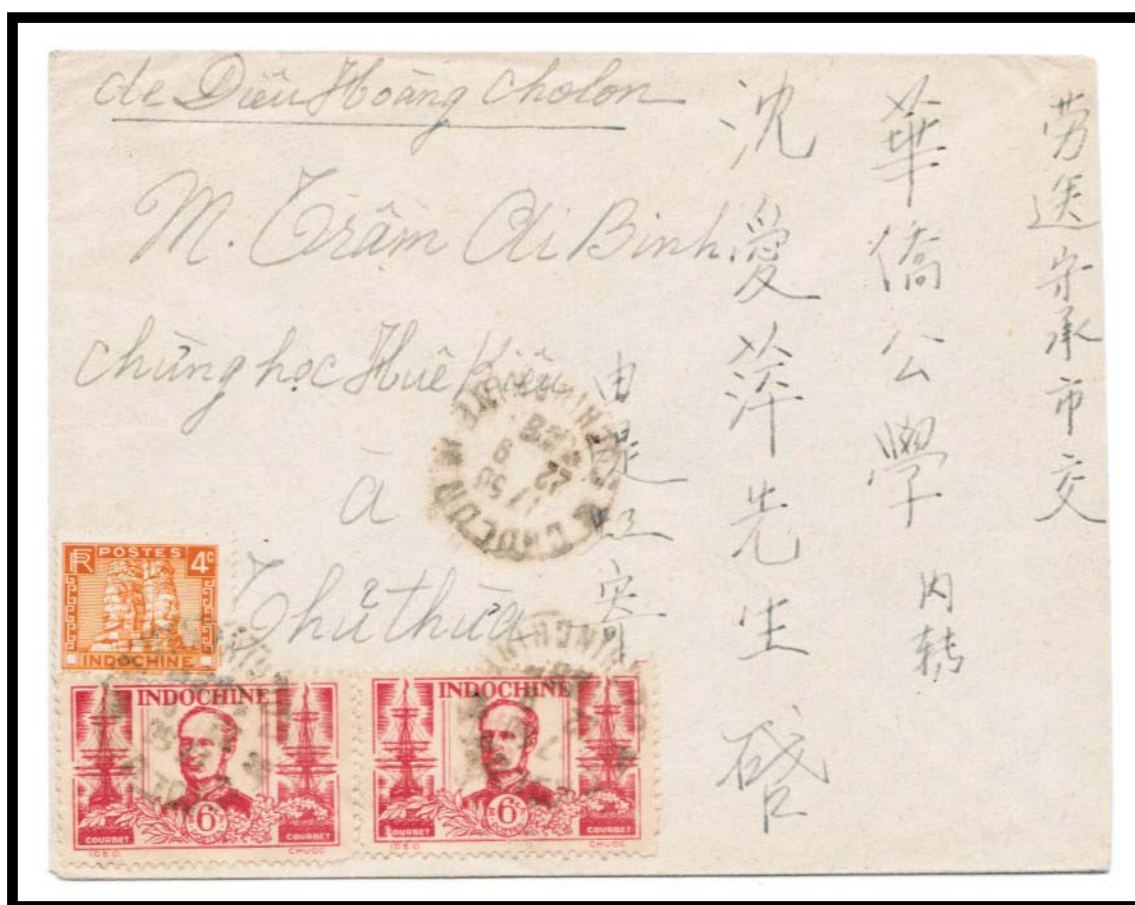 de Diêu Hoàng Cholon
M. Trầm Ái Bình
chùng học Huê Kiều
à
Thủ thừa
劳送守承市交
華僑公學 内轉
沈愛萍先生 啓
由堤缸寄
CHOLON
RF POSTES 4c
INDOCHINE
INDOCHINE
6c
COURBET COURBET
IDEO CHUOC
INDOCHINE
6c
COURBET COURBET
IDEO CHUOC